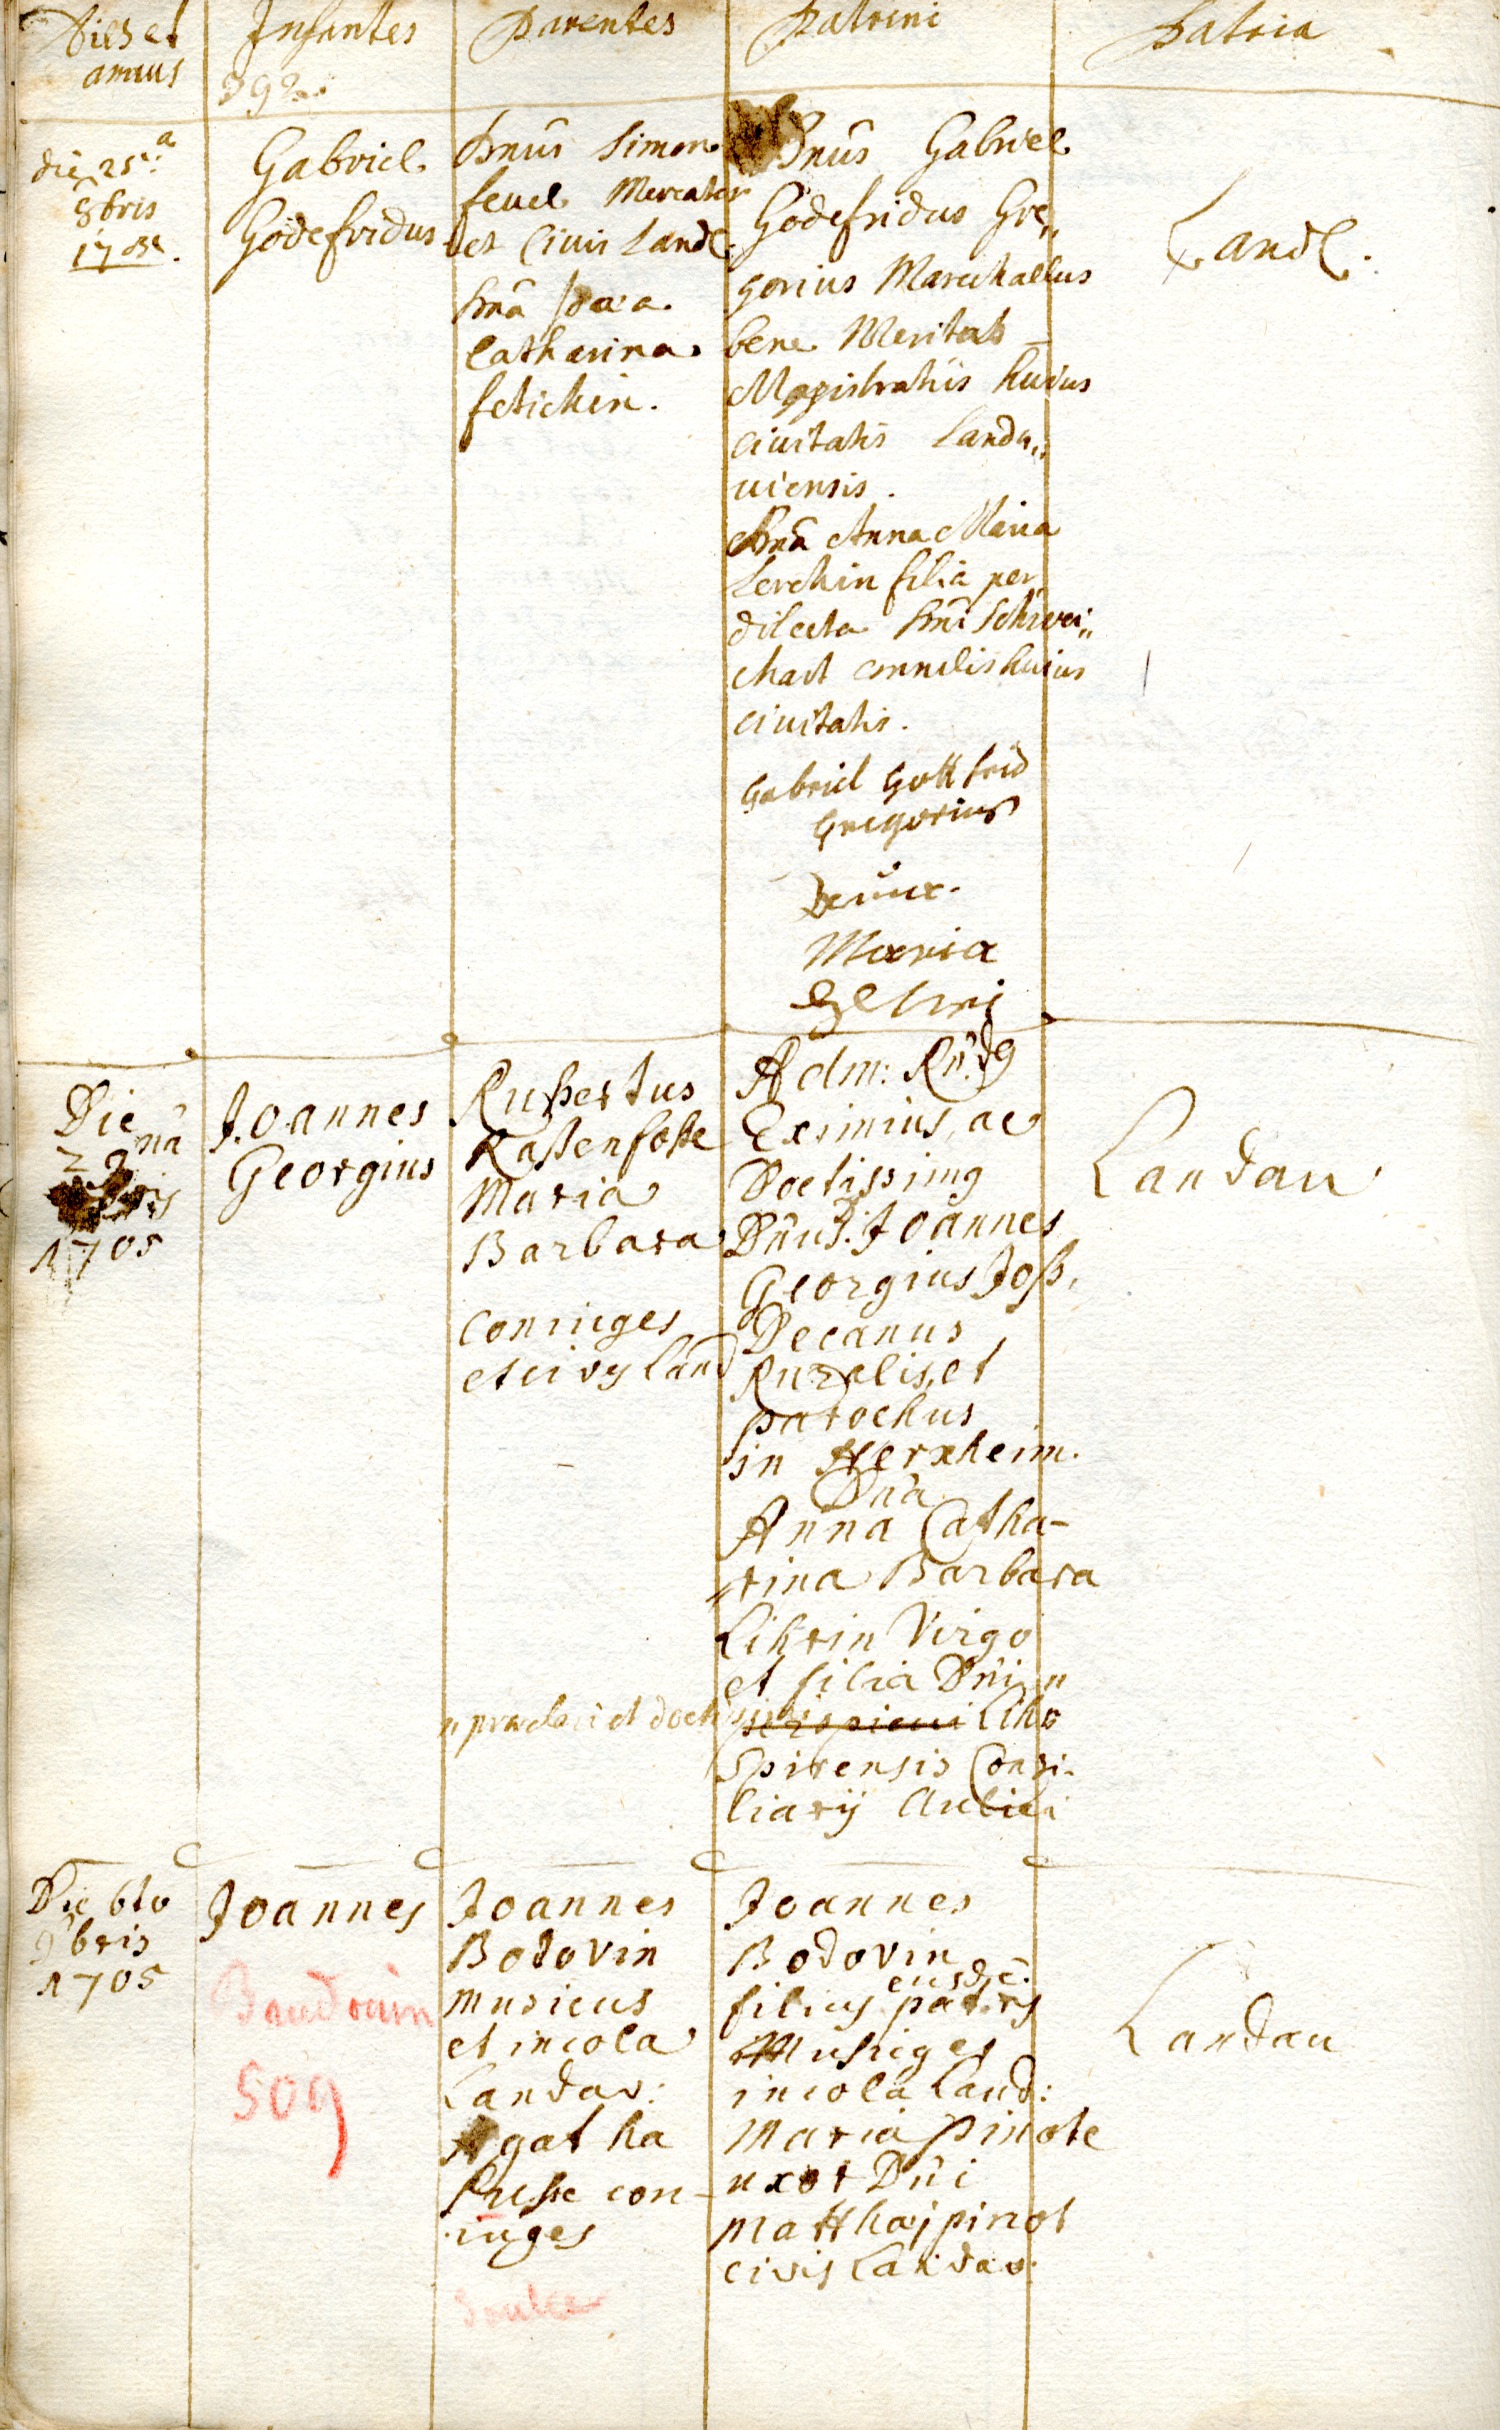 Dies et
annus
Infantes
392.
Parentes
Patrini
Patria
die 25.a
8bris
1705.
Gabriel
Godefridus
Dnus Simon
feuel Mercator
et Civis Land.
Dna
Catharina
fetichin.
Dnus Gabriel
Godefridus Gre,,
gorius Marechallus
bene Meritus
Magistratus huius
civitatis Landa,,
uiensis.
Dna Anna Maria
Lerchin filia per
dilecta Dni Schwei,,
chart huius
civitatis.
Gabriel Gottfrid
Gregorius
Maria
Land.
Die
1705
Joannes
Georgius
Rupertus
Maria
Barbara
Coniuges
et civis Land
Adm: Rnd9
Eximius, ac
Doctissim9
Dnus D. Joannes
Georgius Joß,
Decanus
Ruralis, et
parochus
in Herxheim.
Dna
Anna Catha-
rina Barbara
Lihrin Virgo
et filia Dni ,,
,, praeclari et docti Lihr
Spirensis Consi-
liarij Aulici
Landau
Die 6to
9bris
1705
Joannes
Baudouin
509
Joannes
Bodovin
musicus
et incola
Landav:
Agatha
con-
iuges
Joannes
Bodovin
filius eiusde. patris
incola Land:
Maria Pinote
uxor Dni
Matthaj pinot
civis Landav:
Landau